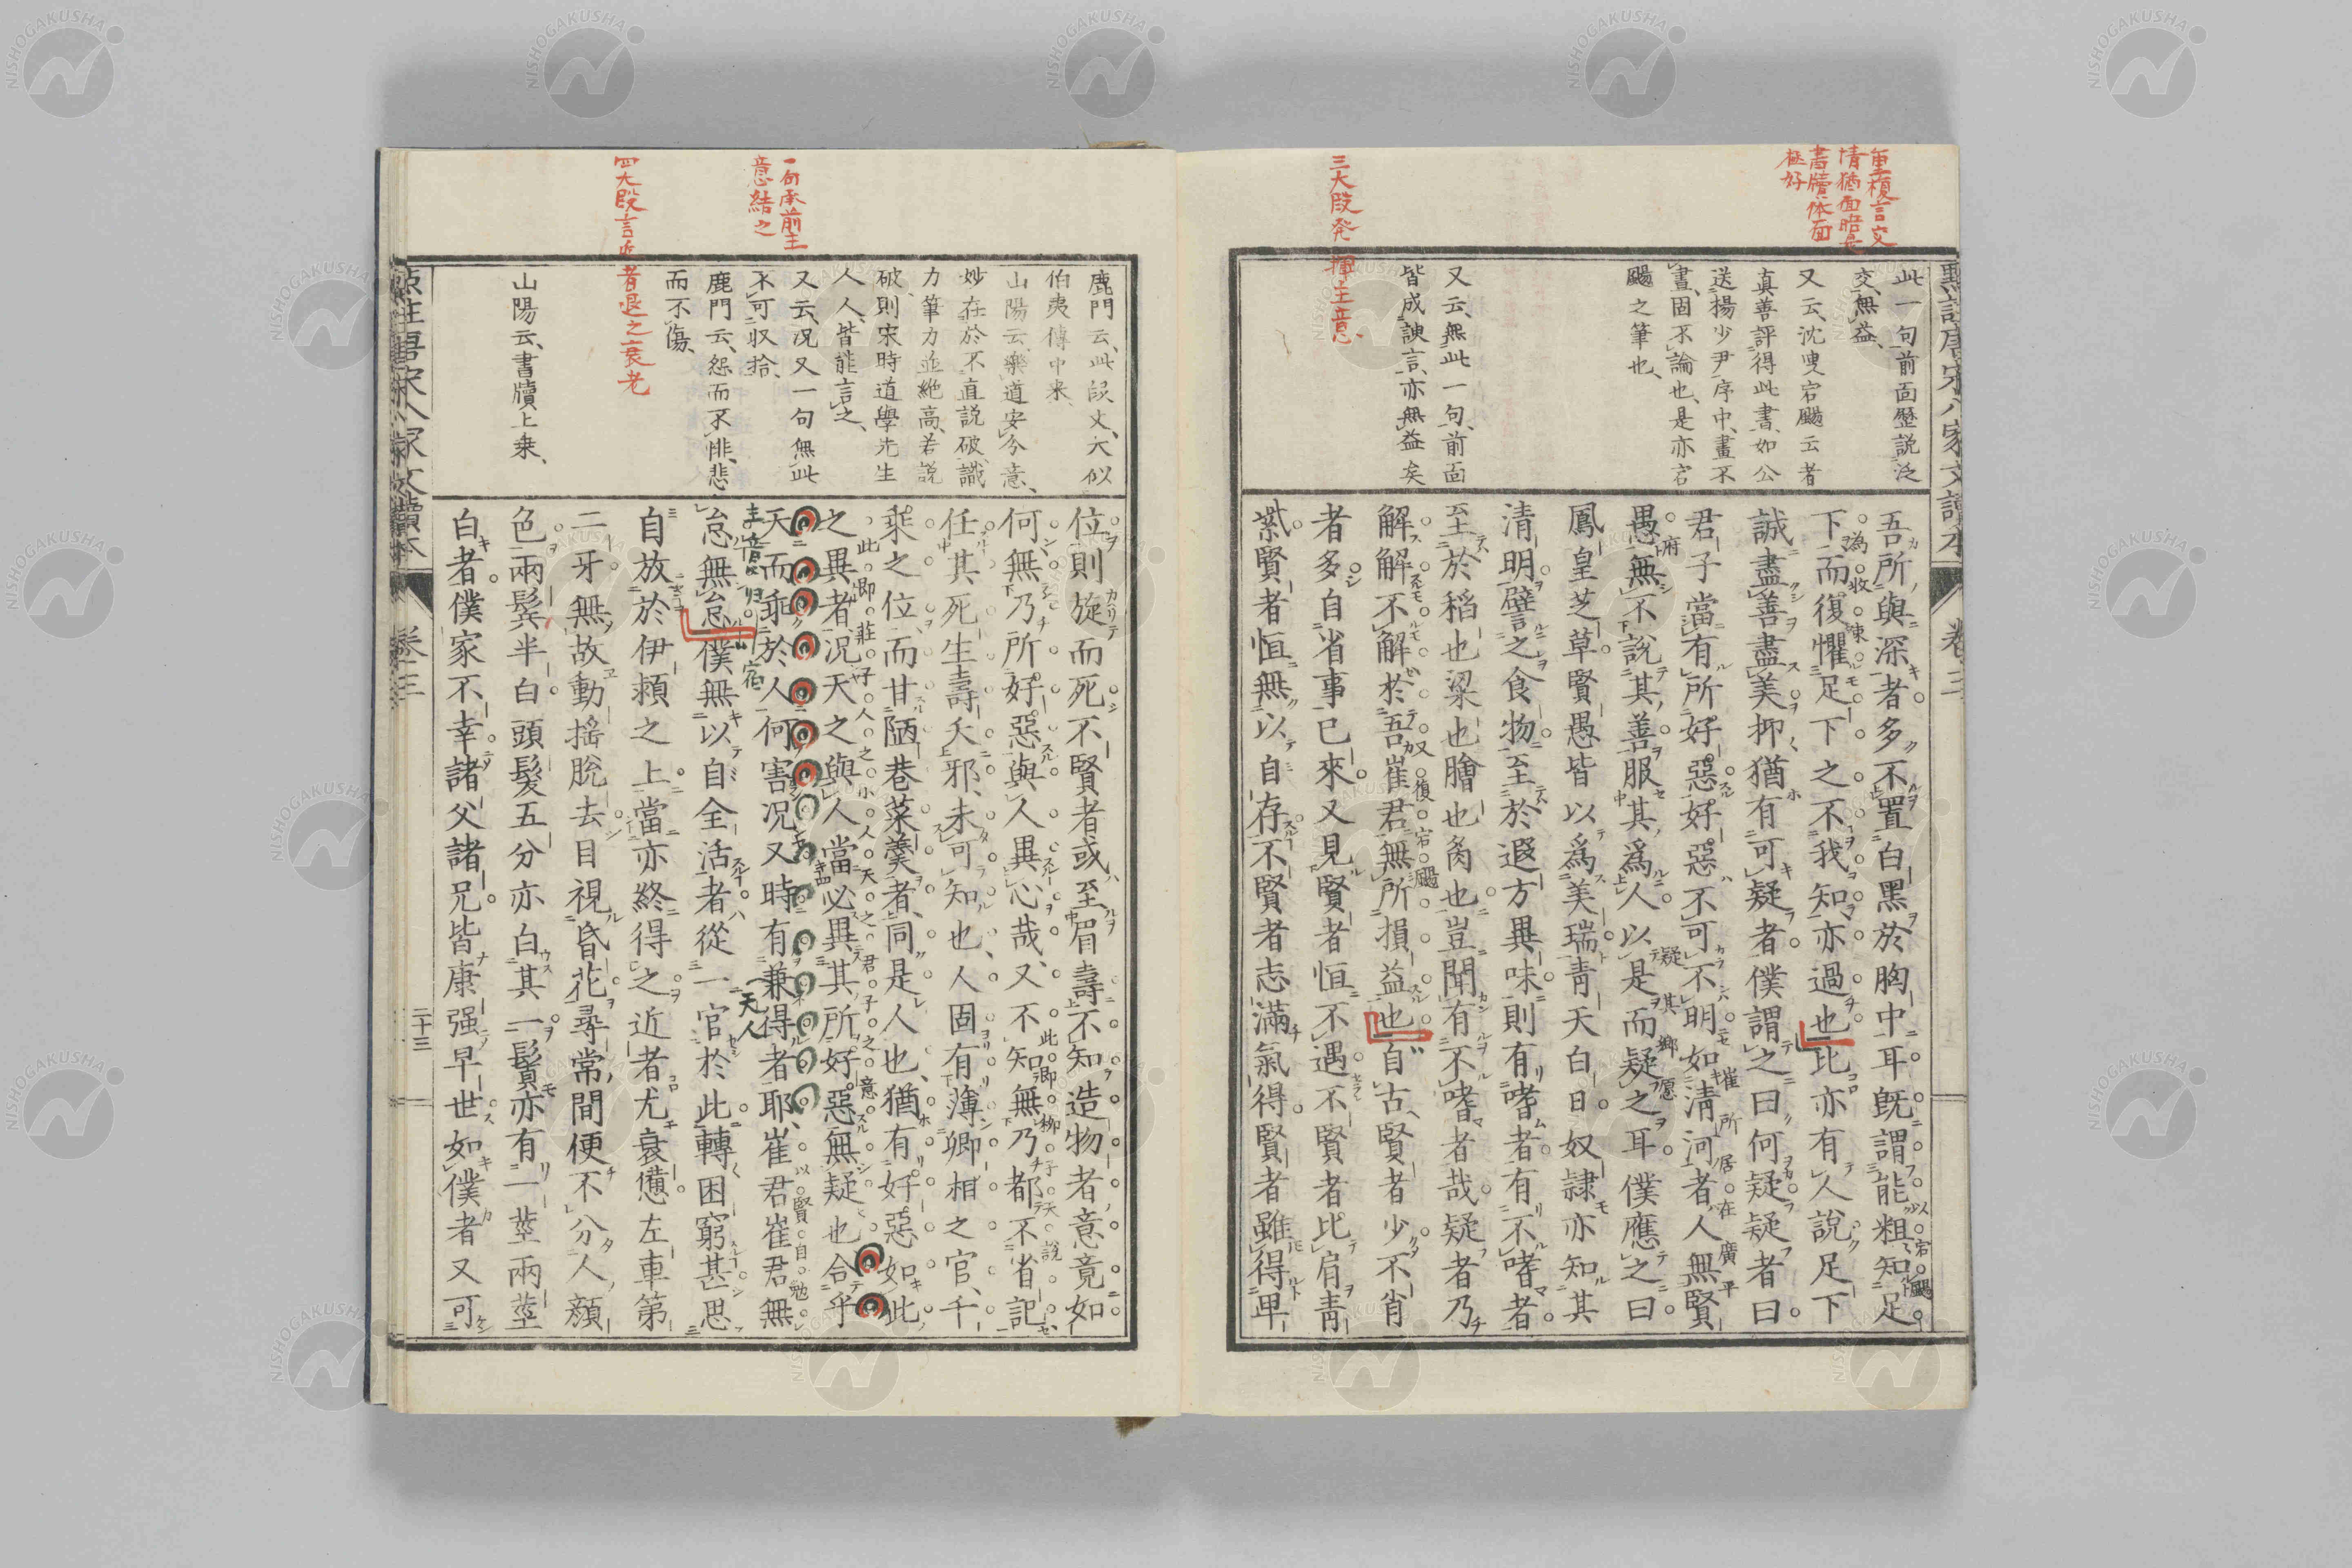 重複言交
情猶面晤是
書牘体面
極好
三大段発揮主意
此一句前面歷説泛
交、無益、
又云、沈叟宕颺云者
真善評得此書、如公
送揚少尹序中、畫不
畫、固不論也、是亦宕
颺之筆也、
又云、無此一句、前面
皆成諛言、亦無益矣
吾所與深者多不置白黑於胸中耳既謂能粗知足
下而復懼足下之不我知亦過也比亦有人說足下
誠盡善盡美抑猶有可疑者僕謂之曰何疑疑者曰
君子當有所好惡好惡不可不明如清河者人無賢
愚無不說其善服其爲人以是而疑之耳僕應之曰
鳳皇芝草賢愚皆以爲美瑞青天白日奴隷亦知其
清明譬之食物至於遐方異味則有嗜者有不嗜者
至於稻也粱也膾也炙也豈聞有不嗜者哉疑者乃
解解不解於吾崔君無所損益也自古賢者少不肖
者多自省事已來又見賢者恒不遇不賢者比肩青
紫賢者恒無以自存不賢者志滿氣得賢者雖得卑
卷三
一句承前主
意結之
四大段言近者退之衰老
鹿門云、此段文、大似
伯夷傳中来、
山陽云、樂道安命意、
妙在於不直説破、識
力筆力並絶高、若説
破、則宋時道學先生
人人、皆能言之、
又云、况又一句無此
不可収拾、
鹿門云、怨而不悱、悲
而不傷、
山陽云、書牘上乗、
位則旋而死不賢者或至眉壽不知造物者意竟如
何無乃所好惡與人異心哉、又不知無乃都不省記
任其死生壽夭邪、未可知也、人固有薄卿相之官、千
乘之位、而甘陋巷菜羹者、同是人也、猶有好惡如此
之異者况天之與人當必異其所好惡無疑也合乎
天而乖於人何害况又時有兼得者耶、崔君崔君無
怠無怠僕無以自全活者從一官於此轉困窮甚思
自放於伊潁之上當亦終得之近者尤衰憊左車第
二牙無故動搖脫去目視昏花尋常間便不分人顏
色兩鬢半白頭髮五分亦白其一鬚亦有一莖兩莖
白者僕家不幸諸父諸兄皆康强早世如僕者又可
二十三
NISHOGAKUSHA